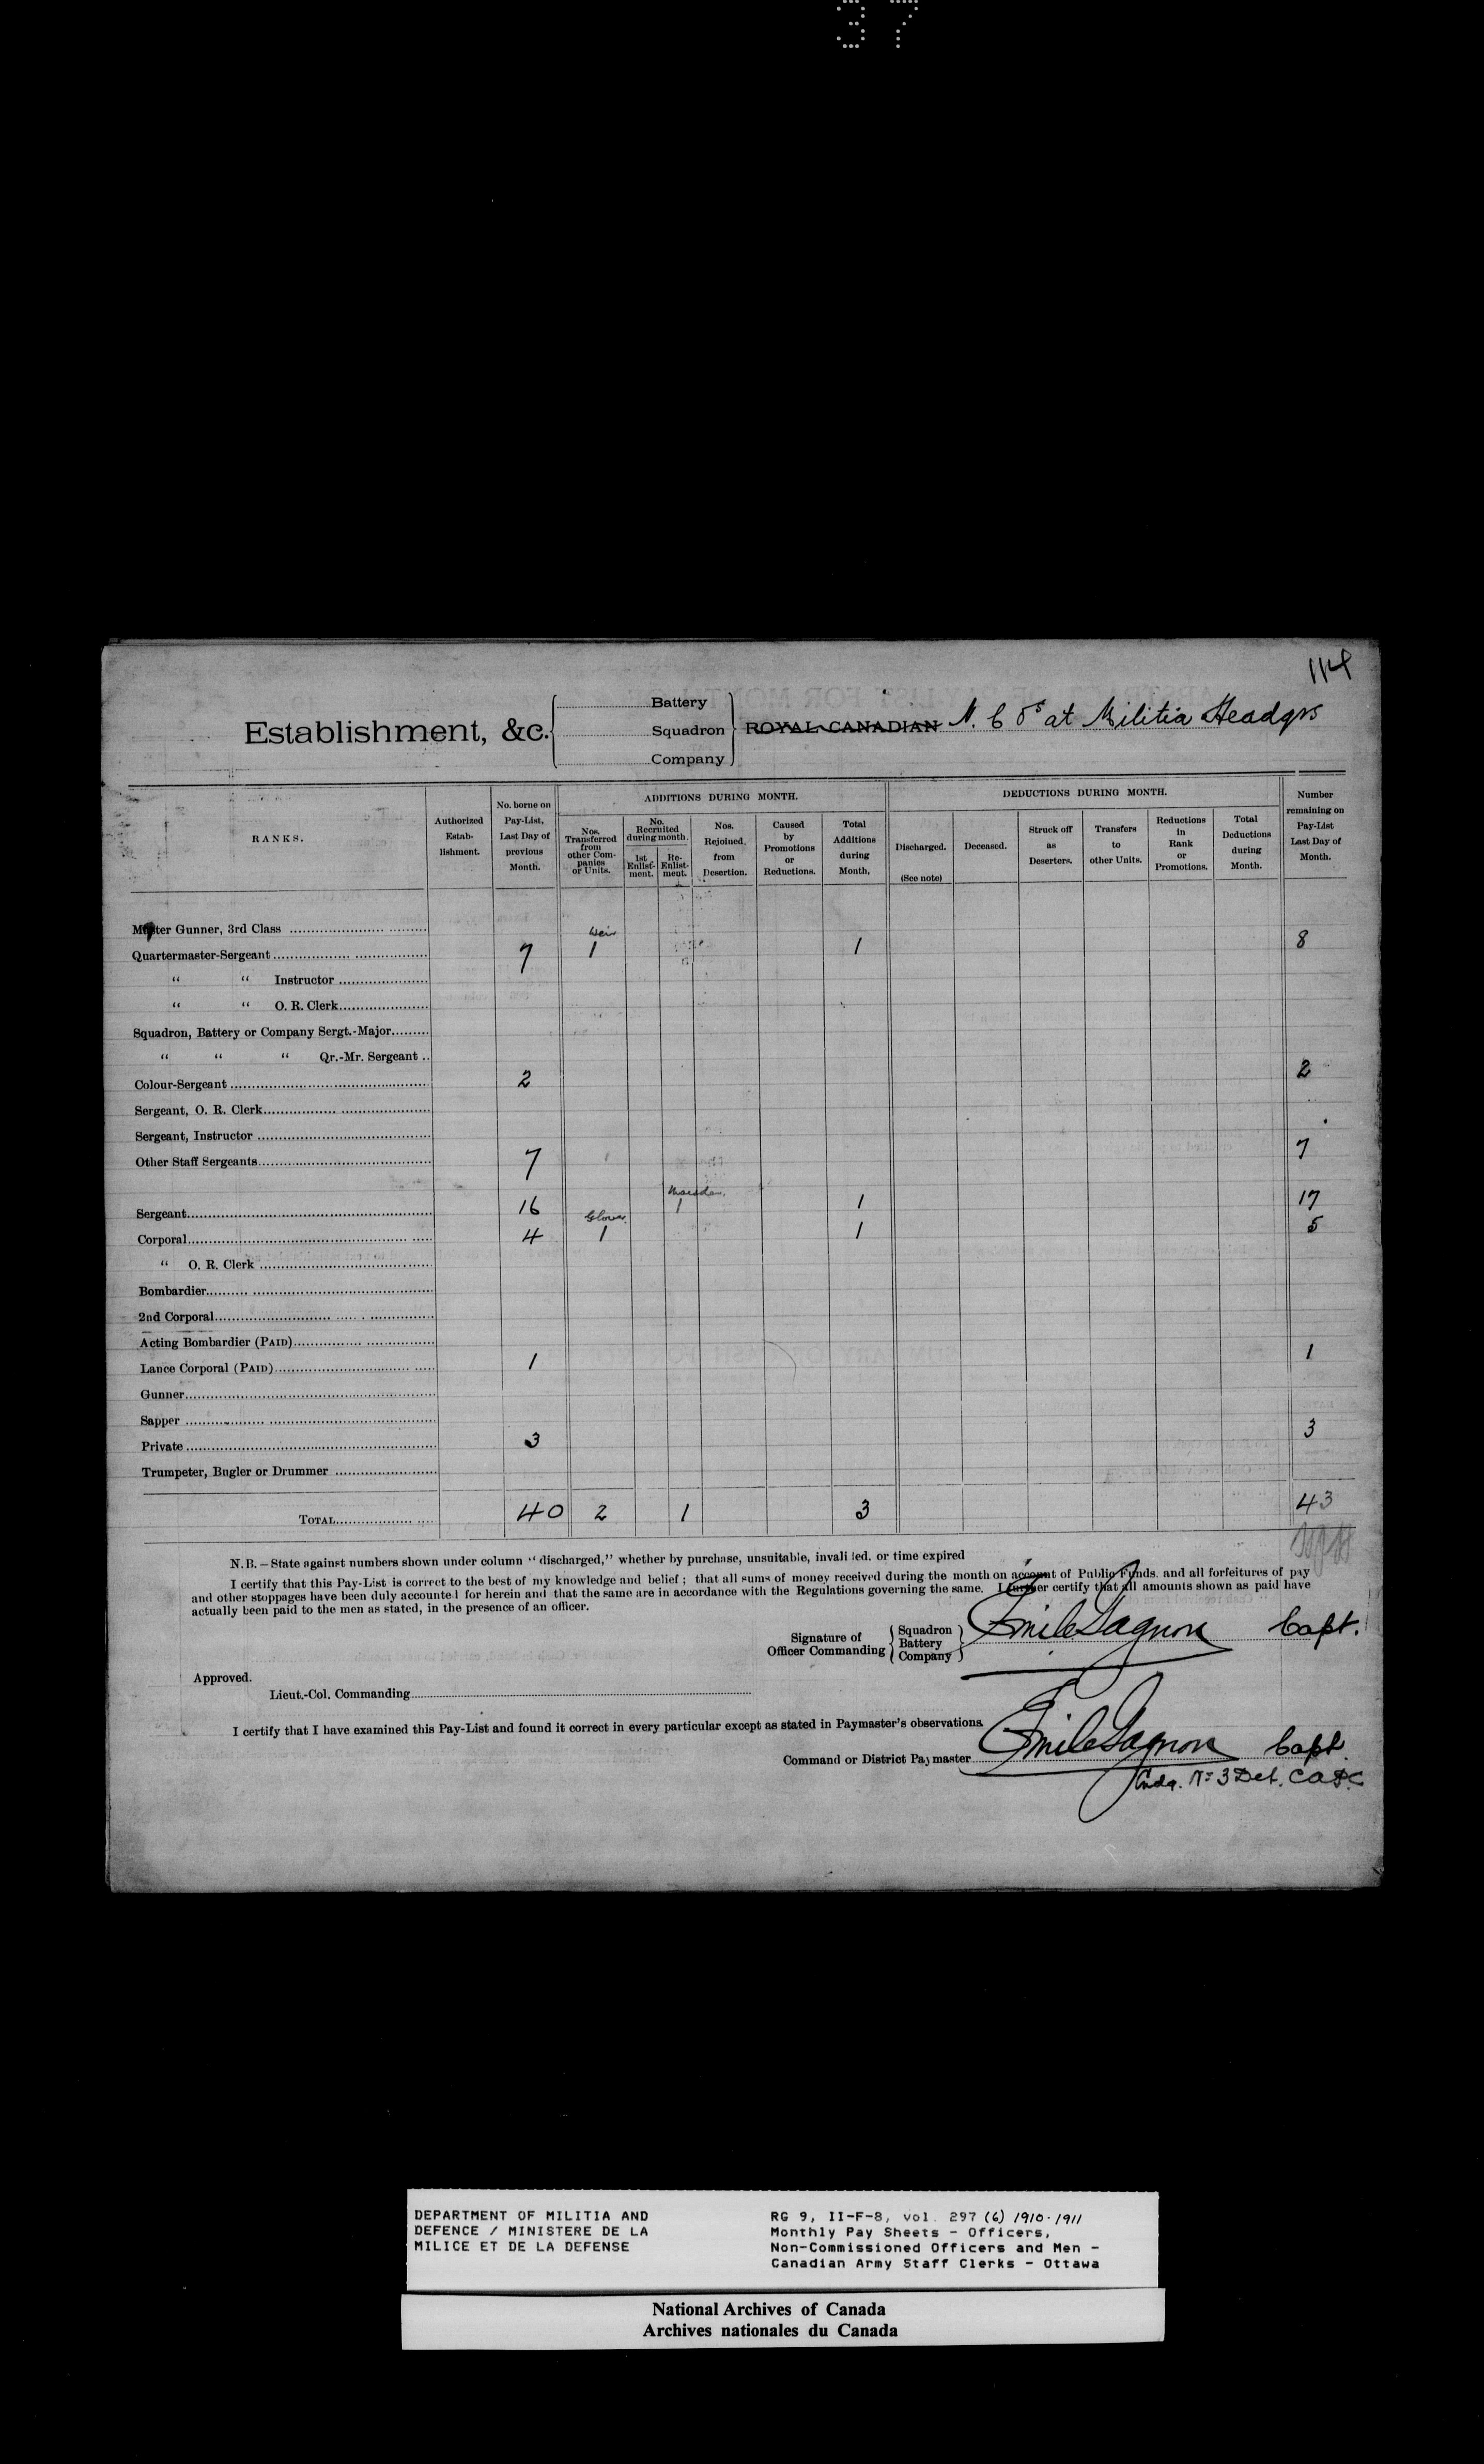 37
114
Establishment, &c.
Battery
Squadron
Company
ROYAL CANADIAN N. C Os at Militia Headqrs
RANKS.
Authorized Estab-lishment.
No. borne on Pay-List, Last Day of previous Month.
ADDITIONS DURING MONTH.
Nos. Transferred from other Com-panies or Units.
No. Recruited during month.
1st Enlist-ment.
Re-Enlist-ment.
Nos. Rejoined from Desertion.
Caused by Promotions or Reductions.
Total Additions during Month.
DEDUCTIONS DURING MONTH.
Discharged. (See note)
Deceased.
Struck off as Deserters.
Transfers to other Units.
Reductions in Rank or Promotions.
Total Deductions during Month.
Number remaining on Pay-List Last Day of Month.
Master Gunner, 3rd Class
Weir
Quartermaster-Sergeant 7 1 1 8
" " Instructor
" " O. R. Clerk
Squadron, Battery or Company Sergt.-Major
" " " Qr.-Mr. Sergeant
Colour-Sergeant 2 2
Sergeant, O. R. Clerk
Sergeant, Instructor
Other Staff Sergeants 7 7
Sergeant 16 1 1 17
Glover
Corporal 4 1 1 5
" O. R. Clerk
Bombardier
2nd Corporal
Acting Bombardier (PAID)
Lance Corporal (PAID) 1 1
Gunner
Sapper
Private 3 3
Trumpeter, Bugler or Drummer
TOTAL 40 2 1 3 43
N.B.—State against numbers shown under column "discharged," whether by purchase, unsuitable, invali led, or time expired
I certify that this Pay-List is correct to the best of my knowledge and belief; that all sums of money received during the month on account of Public Funds. and all forfeitures of pay
and other stoppages have been duly accounted for herein and that the same are in accordance with the Regulations governing the same. I further certify that all amounts shown as paid have
actually been paid to the men as stated, in the presence of an officer.
Signature of Officer Commanding
Squadron
Battery
Company
Emile Gagnon Capt.
Approved.
Lieut.-Col. Commanding
I certify that I have examined this Pay-List and found it correct in every particular except as stated in Paymaster's observations
Command or District Paymaster Emile Gagnon Capt
Cmdg. No 3 Det. CAPC
DEPARTMENT OF MILITIA AND
DEFENCE / MINISTERE DE LA
MILICE ET DE LA DEFENSE
RG 9, II-F-8, vol. 297 (6) 1910-1911
Monthly Pay Sheets - Officers,
Non-Commissioned Officers and Men -
Canadian Army Staff Clerks - Ottawa
National Archives of Canada
Archives nationales du Canada